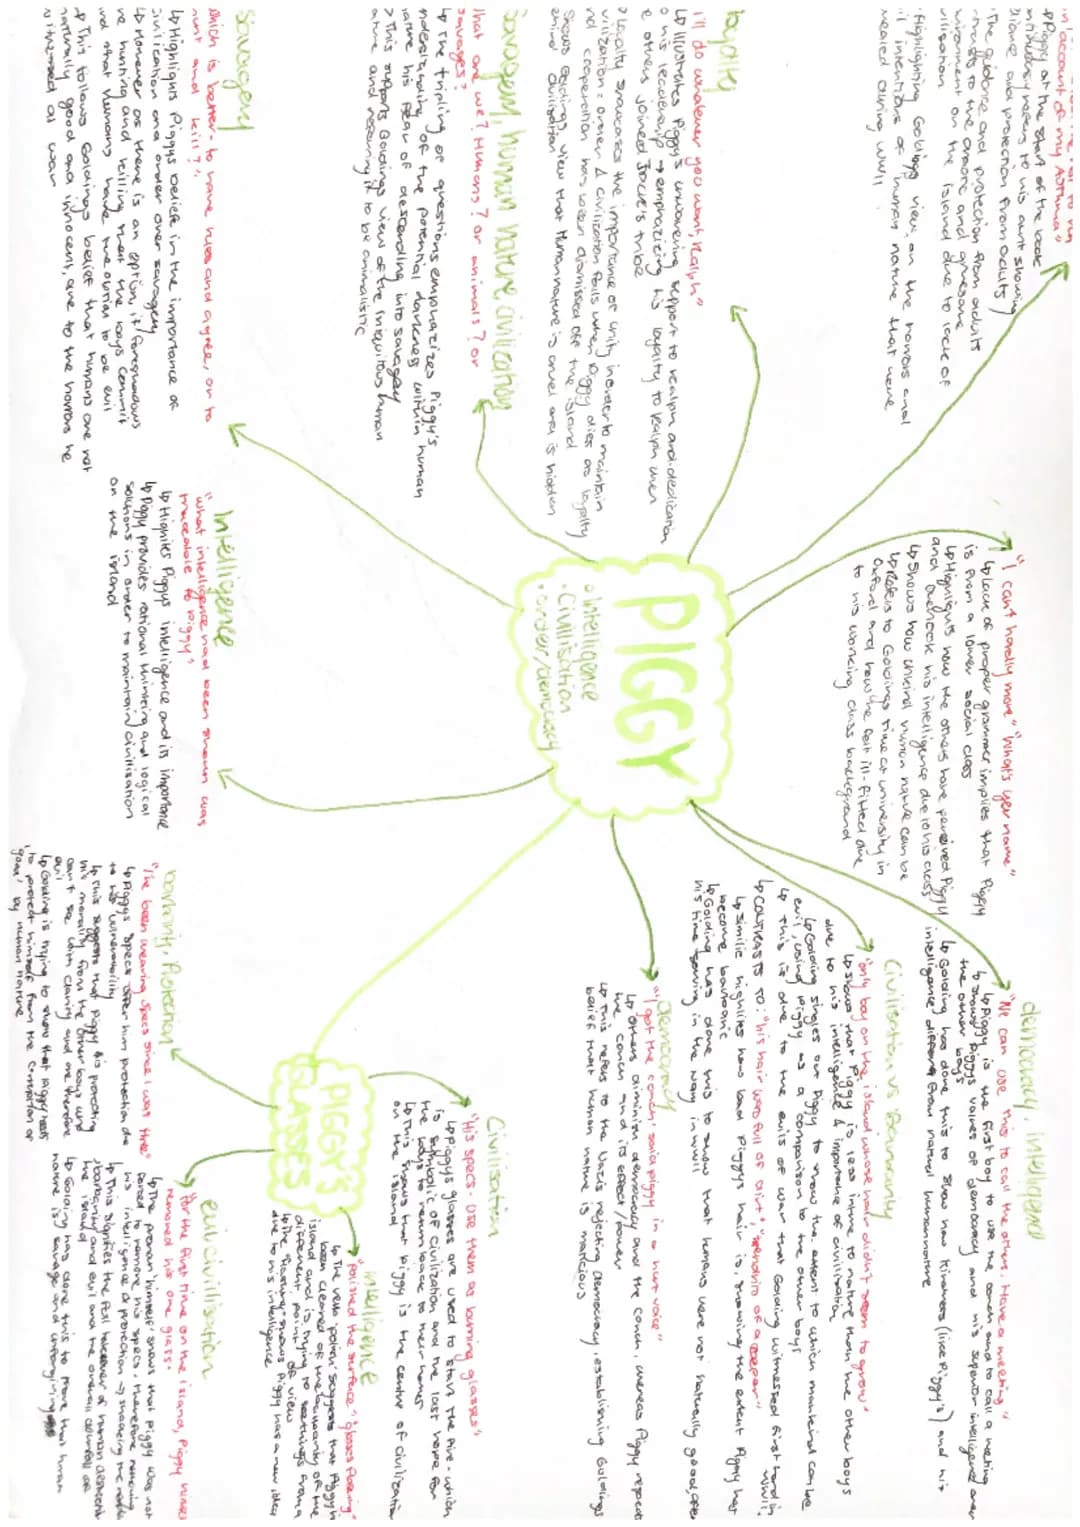 PIGGY
• Intelligence
• Civillisation
• order/democracy
in account of my Asthma"
↳ Piggy at the start of the book
This guidance and protection from adults
civillisation
Highlighting Golding view on the horrors and
evil intentions of human nature that were
revealed during WWII
loyalty
I'll do whatever you want, Ralph"
↳ Illustrates Piggy's unwavering support to realph and dedication
to his leadership → emphasizing his loyality to Ralph when
others joined Jack's tribe
loyalty showcases the importance of unity inorder to maintain
civilization, order & civilization falls when Piggy dies as loyalty
and cooperation has been dismissed off the island
Shows Goldings view that human nature is cruel and is hidden
behind civilization
Savagery, human nature, civilization
What are we? Humans? or animals? or
savages?
↳ The tripling of questions emphasizes Piggy's
understanding of the potential darkness within human
nature his fear of descending into savagery
> This supports Goldings view of the iniquitous human
nature and referring it to be animalistic
Savagery
which is better - to have rules and agree, or to
hunt and kill?".
↳ Highlights Piggys beliefs in the importance of
civilization and order over savagery
↳ However as there is an option, it foreshadows
the hunting and killing that the boys commit
and that humans have the option to be evil
↳ This follows Goldings belief that humans are not
naturally good and innocent, due to the horrors he
witnessed at war
Intelligence
"What intelligence had been shown was
traceable to Piggy"
↳ Highlites Piggys intelligence and is importance
↳ Piggy provides rational thinking and logical
solutions in order to maintain civilisation
on the island
"I can't hardly move" "What's yer name"
↳ Lack of proper grammer implies that Piggy
is from a lower social class
↳ Highlights how the others have perceived Piggy
and overlook his intelligence due to his class
↳ Shows how unkind human nature can be
↳ Refers to Goldings time at university in
Oxford and how he felt ill-fitted due
to his working class background
democracy, intelligence
"We can use this to call the others. Have a meeting"
↳ Piggy is the first boy to use the conch and to call a meeting
↳ shows Piggys values of democracy and his superior intelligence over
the other boys
↳ Golding has done this to show how kindness (like Piggy's) and his
intelligence differs from natural human nature
Civilisation vs Barbarity
"only boy on the island whose hair didn't seem to grow"
↳ shows that Piggy is less intune to nature than the other boys
due to his intelligence & importance of civilisation
↳ Golding singles out Piggy to show the extent to which mankind can be
evil, using Piggy as a comparison to the other boys
↳ This is due to the evils of war that Golding witnessed first hand in
WWII
↳ CONTRASTS TO: "his hair was full of dirt", "tendrils of a creeper"
↳ Similie highlites how hard Piggys hair is, showing the extent Piggy has
become barbaric
↳ Golding has done this to show that humans were not naturally good, after
his time serving in the navy in WWII
democracy
"I got the conch' said piggy in a hurt voice"
↳ Others diminish democracy and the conch, whereas Piggy respects
the conch and its effect/power
↳ This refers to the Nazis rejecting democracy, establishing Goldings
belief that human nature is malicious
PIGGY'S
GLASSES
Civilisation
"His specs - use them as burning glasses"
↳ Piggys glasses are used to start the fire - which
is symbolic of civilization and the last hope for
the boys to return back to their homes
↳ This shows that Piggy is the centre of civilization
on the island
intelligence
"polished the surface"
↳ The verb 'polish' suggests that Piggy
been cleaned of the of the
island and is trying to see things from a
different point of view
↳ The 'flashing' shows Piggy has a new idea
due to his intelligence
evil, civilisation
"for the first time on the island, Piggy himself
removed his one glass".
↳ The pronoun 'himself' shows that Piggy was not
forced to remove his specs, therefore removing
his intelligence & protection
↳ This signifies the full takeover of human
barbarity and evil and the overall downfall of
the island
↳ Golding has done this to prove that human
nature is savage and unforgiving
barbarity, Protection
"I've been wearing specs since I was three"
↳ Piggys specs offer him protection due
to his vulnerability
↳ This suggests that Piggy is protecting
his morality from the other boys who
can't see with clarity and are therefore
evil
↳ Golding is trying to show that Piggy needs
to protect himself from the corruption of
by human nature